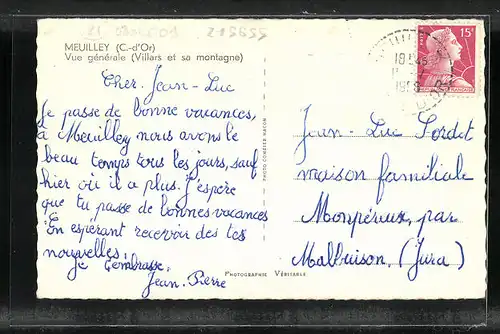 MEUILLEY (C.-d'Or)
Vue générale (Villars et sa montagne)
Cher Jean-Luc
Je passe de bonne vacances,
à Meuilley nous avons le
beau temps tous les jours, sauf
hier où il a plus. J'espère
que tu passe de bonnes vacances
En espérant recevoir des tes
nouvelles.
je t'embrasse.
Jean-Pierre
PHOTO COMBIER MACON
PHOTOGRAPHIE VÉRITABLE
15F
Jean-Luc Sordet
maison familiale
Monpéreux, par
Malbuison. (Jura)